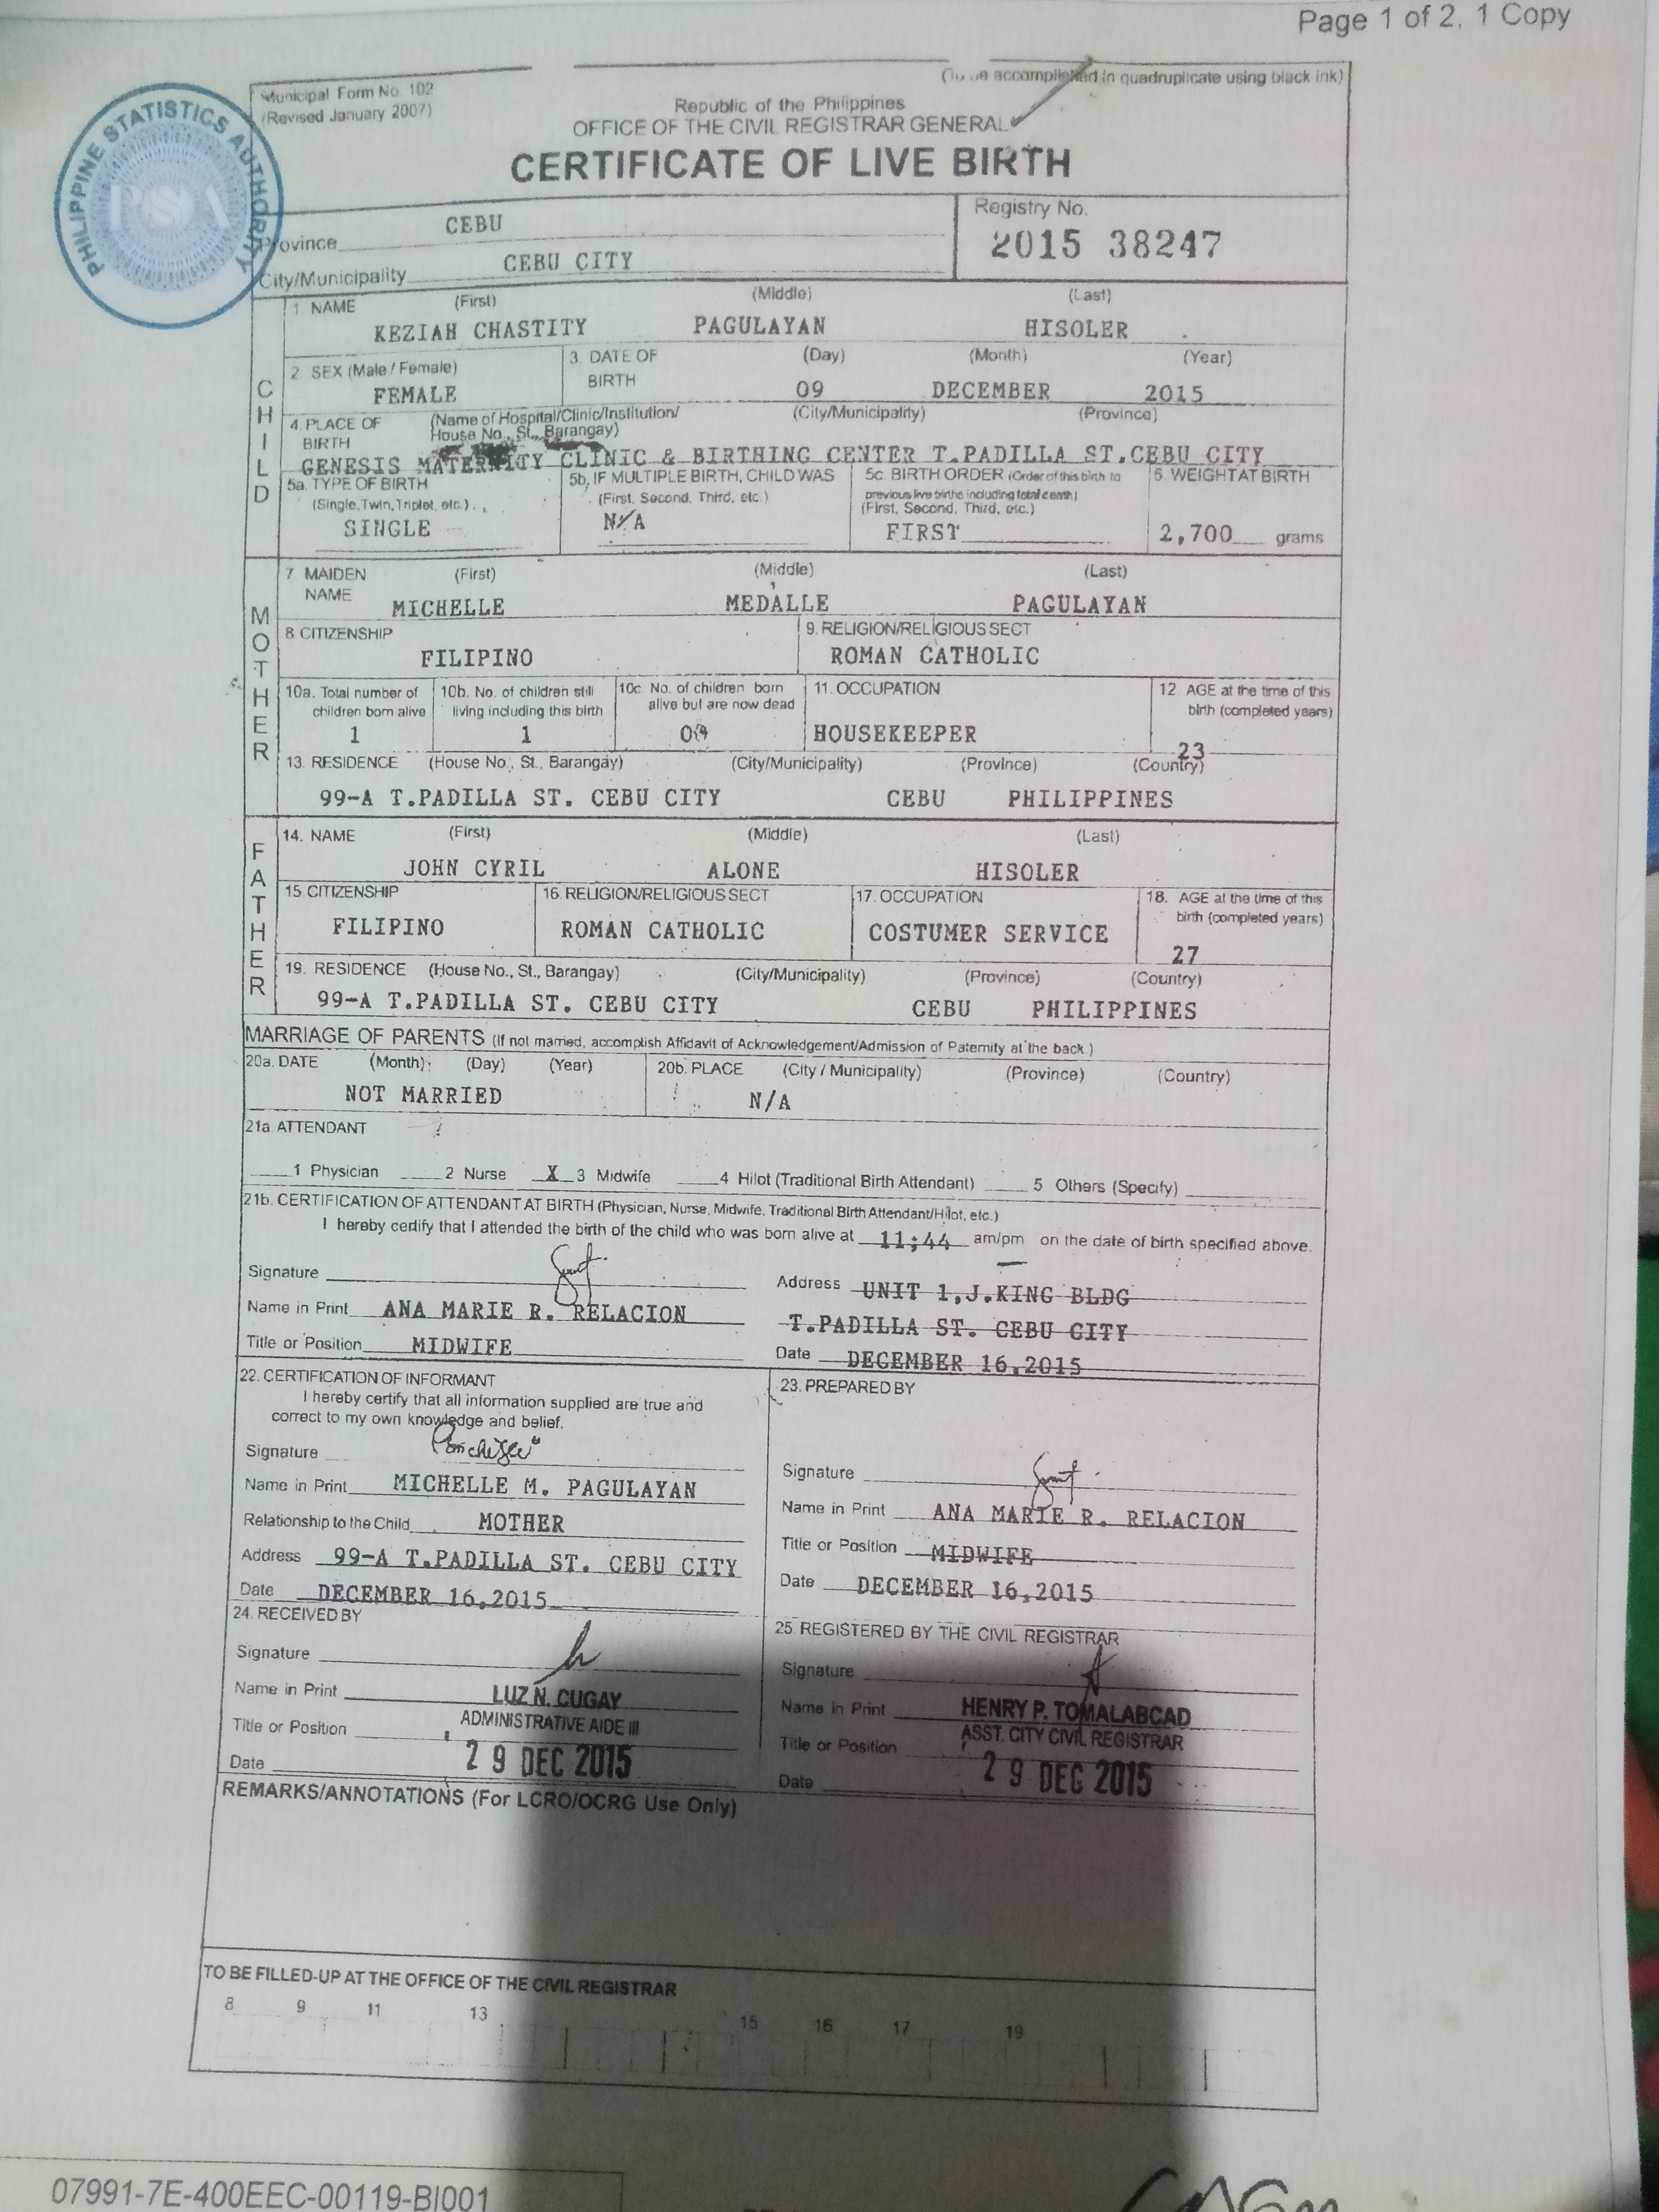 Page 1 of 2, 1 Copy
(To be accomplished in quadruplicate using black ink)
Municipal Form No. 102
(Revised January 2007)
Republic of the Philippines
OFFICE OF THE CIVIL REGISTRAR GENERAL
CERTIFICATE OF LIVE BIRTH
PHILIPPINE STATISTICS AUTHORITY
PSA
Province CEBU
City/Municipality CEBU CITY
Registry No.
2015 38247
CHILD
1. NAME (First) (Middle) (Last)
KEZIAH CHASTITY PAGULAYAN HISOLER
2. SEX (Male / Female) 3. DATE OF BIRTH (Day) (Month) (Year)
FEMALE 09 DECEMBER 2015
4. PLACE OF BIRTH (Name of Hospital/Clinic/Institution/ House No., St., Barangay) (City/Municipality) (Province)
GENESIS MATERNITY CLINIC & BIRTHING CENTER T.PADILLA ST.CEBU CITY
5a. TYPE OF BIRTH (Single, Twin, Triplet, etc.) 5b. IF MULTIPLE BIRTH, CHILD WAS (First, Second, Third, etc.) 5c. BIRTH ORDER (Order of this birth to previous live births including fetal death) (First, Second, Third, etc.) 6. WEIGHT AT BIRTH
SINGLE N/A FIRST 2,700 grams
MOTHER
7. MAIDEN NAME (First) (Middle) (Last)
MICHELLE MEDALLE PAGULAYAN
8 CITIZENSHIP 9. RELIGION/RELIGIOUS SECT
FILIPINO ROMAN CATHOLIC
10a. Total number of children born alive 10b. No. of children still living including this birth 10c. No. of children born alive but are now dead 11. OCCUPATION 12. AGE at the time of this birth (completed years)
1 1 HOUSEKEEPER 23
13. RESIDENCE (House No., St., Barangay) (City/Municipality) (Province) (Country)
99-A T.PADILLA ST. CEBU CITY CEBU PHILIPPINES
FATHER
14. NAME (First) (Middle) (Last)
JOHN CYRIL ALONE HISOLER
15. CITIZENSHIP 16. RELIGION/RELIGIOUS SECT 17. OCCUPATION 18. AGE at the time of this birth (completed years)
FILIPINO ROMAN CATHOLIC COSTUMER SERVICE 27
19. RESIDENCE (House No., St., Barangay) (City/Municipality) (Province) (Country)
99-A T.PADILLA ST. CEBU CITY CEBU PHILIPPINES
MARRIAGE OF PARENTS (If not married, accomplish Affidavit of Acknowledgement/Admission of Paternity at the back.)
20a. DATE (Month) (Day) (Year) 20b. PLACE (City / Municipality) (Province) (Country)
NOT MARRIED N/A
21a. ATTENDANT
1 Physician 2 Nurse X 3 Midwife 4 Hilot (Traditional Birth Attendant) 5 Others (Specify)
21b. CERTIFICATION OF ATTENDANT AT BIRTH (Physician, Nurse, Midwife, Traditional Birth Attendant/Hilot, etc.)
I hereby certify that I attended the birth of the child who was born alive at 11:44 am/pm on the date of birth specified above.
Signature
Name in Print ANA MARIE R. RELACION
Title or Position MIDWIFE
Address UNIT 1,J.KING BLDG
T.PADILLA ST. CEBU CITY
Date DECEMBER 16,2015
22. CERTIFICATION OF INFORMANT
I hereby certify that all information supplied are true and
correct to my own knowledge and belief.
Signature
Name in Print MICHELLE M. PAGULAYAN
Relationship to the Child MOTHER
Address 99-A T.PADILLA ST. CEBU CITY
Date DECEMBER 16,2015
23. PREPARED BY
Signature
Name in Print ANA MARIE R. RELACION
Title or Position MIDWIFE
Date DECEMBER 16,2015
24. RECEIVED BY
Signature
Name in Print LUZ N. CUGAY
Title or Position ADMINISTRATIVE AIDE III
Date 29 DEC 2015
25. REGISTERED BY THE CIVIL REGISTRAR
Signature
Name in Print HENRY P. TOMALABCAD
Title or Position ASST. CITY CIVIL REGISTRAR
Date 29 DEC 2015
REMARKS/ANNOTATIONS (For LCRO/OCRG Use Only)
TO BE FILLED-UP AT THE OFFICE OF THE CIVIL REGISTRAR
8 9 11 13 15 16 17 19
07991-7E-400EEC-00119-BI001